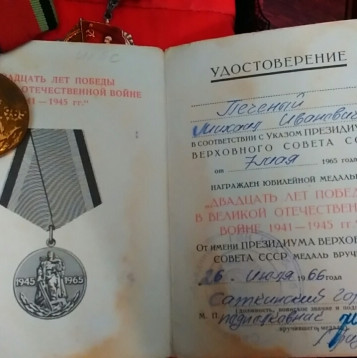 ДВАДЦАТЬ ЛЕТ ПОБЕДЫ
ОТЕЧЕСТВЕННОЙ ВОЙНЕ
1941—1945 гг."
1945 1965
УДОСТОВЕРЕНИЕ
Печеный
Михаил Иванович
В СООТВЕТСТВИИ С УКАЗОМ ПРЕЗИДИ
ВЕРХОВНОГО СОВЕТА СС
от 7 мая 1965 год
НАГРАЖДЕН ЮБИЛЕЙНОЙ МЕДАЛЬ
„ДВАДЦАТЬ ЛЕТ ПОБЕД
В ВЕЛИКОЙ ОТЕЧЕСТВЕН
ВОЙНЕ 1941—1945 гг."
От имени ПРЕЗИДИУМА ВЕРХОВ
СОВЕТА СССР МЕДАЛЬ ВРУЧЕ
26 июля 1966 года
Саткинский гор
М. П. (должность, воинское звание и подп
подполковник
вручившего медаль)